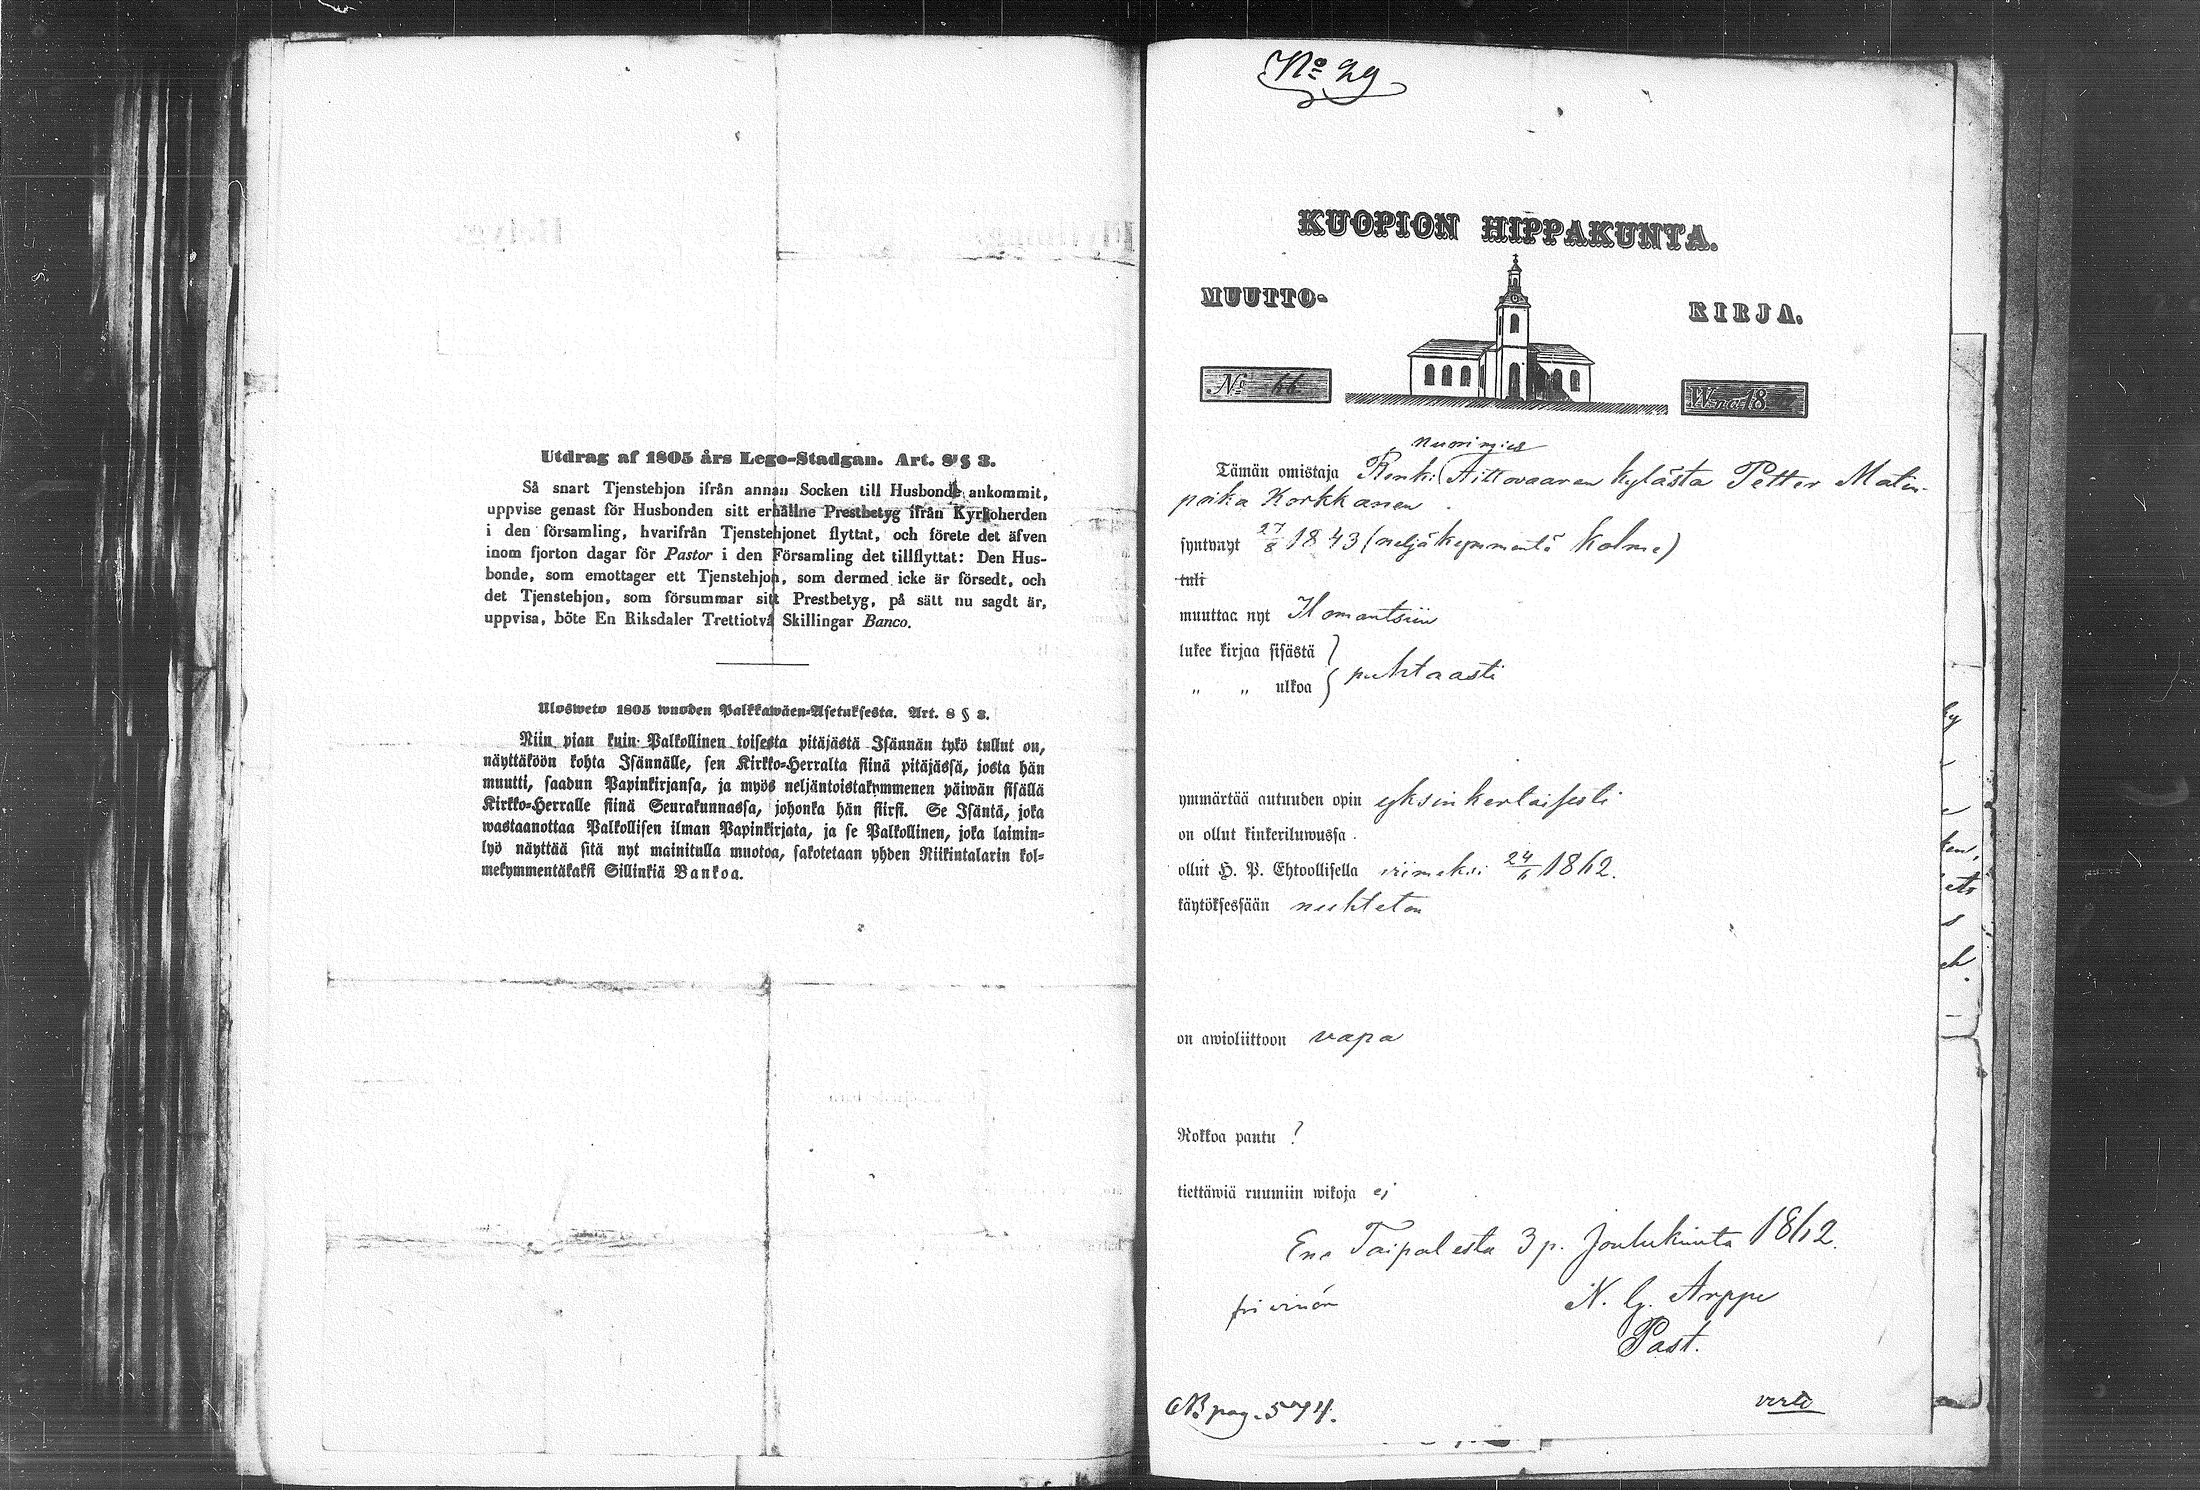 Utdrag af 1805 års Lego-Stadgan. Art. 8 § 3.
Så snart Tjenstehjon ifrån annan Socken till Husbonde ankommit,
uppvise genast för Husbonden sitt erhållne Prestbetyg ifrån Kyrkoherden
i den församling, hvarifrån Tjenstehjonet flyttat, och förete det äfven
inom fjorton dagar för Pastor i den Församling det tillflyttat: Den Hus-
bonde, som emottager ett Tjenstehjon, som dermed icke är försedt, och
det Tjenstehjon, som försummar sitt Prestbetyg, på sätt nu sagdt är,
uppvisa, böte En Riksdaler Trettiotvå Skillingar Banco.
Ulosweto 1805 wuoden Palkkawäen-Asetuksesta. Art. 8 § 3.
Niin pian kuin Palkollinen toisesta pitäjästä Isännän tykö tullut on,
näyttäköön kohta Isännälle, sen Kirkko-Herralta siinä pitäjässä, josta hän
muutti, saadun Papinkirjansa, ja myös neljäntoistakymmenen päiwän sisällä
Kirkko-Herralle siinä Seurakunnassa, johonka hän siirsi. Se Isäntä, joka
wastaanottaa Palkollisen ilman Papinkirjata, ja se Palkollinen, joka laimin-
lyö näyttää sitä nyt mainitulla muotoa, sakotetaan yhden Riikintalarin kol-
mekymmentäkaksi Sillinkiä Bankoa.
No 29
KUOPION HIPPAKUNTA.
MUUTTO- KIRJA.
No 66 W:na 18
nuorimies
Tämän omistaja Renki Aittovaaran kylästä Petter Matin-
poika Korkkanen
syntynyt 27/8 1843 (neljäkymmentä kolme)
tuli
muuttaa nyt Ilomantsiin
lukee kirjaa sisästä
" " ulkoa puhtaasti
ymmärtää autuuden opin yksinkertaisesti
on ollut kinkeriluwussa
ollut H. P. Ehtoollisella viimeksi 24/6 1862.
käytöksessään nuhteton
on awioliittoon vapa
Rokkoa pantu ?
tiettäwiä ruumiin wikoja ei
Eno Taipalesta 3 p. Joulukuuta 1862.
N. G. Arppe
Past.
pag. 574.
verte